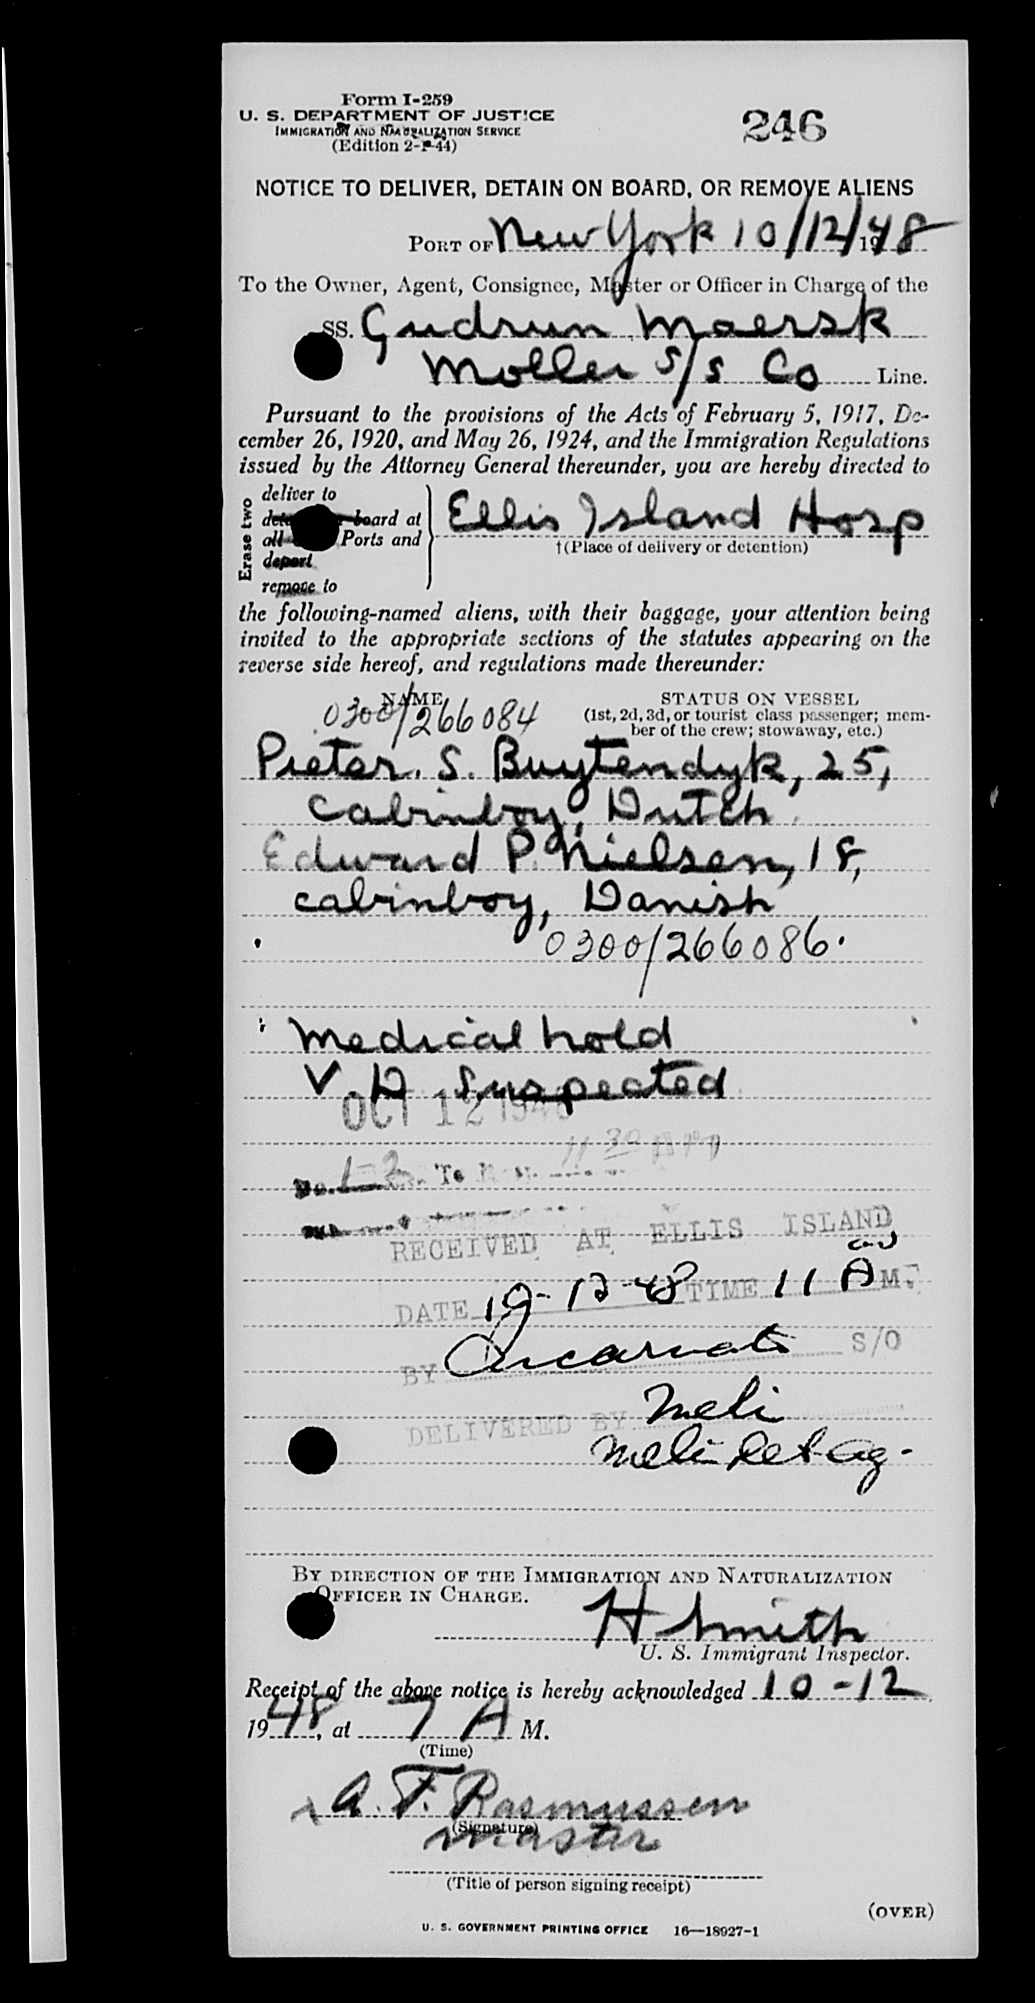 Form I-259
U. S. DEPARTMENT OF JUSTICE
IMMIGRATION AND NATURALIZATION SERVICE
(Edition 2-1-44)
246
NOTICE TO DELIVER, DETAIN ON BOARD, OR REMOVE ALIENS
PORT OF New York 10/12/1948
To the Owner, Agent, Consignee, Master or Officer in Charge of the
SS. Gudrun Maersk
Moller S/S Co Line.
Pursuant to the provisions of the Acts of February 5, 1917, De-
cember 26, 1920, and May 26, 1924, and the Immigration Regulations
issued by the Attorney General thereunder, you are hereby directed to
Erase two
deliver to
board at
all Ports and
depart
remove to
Ellis Island Hosp
†(Place of delivery or detention)
the following-named aliens, with their baggage, your attention being
invited to the appropriate sections of the statutes appearing on the
reverse side hereof, and regulations made thereunder:
NAME
0300/266084
STATUS ON VESSEL
(1st, 2d, 3d, or tourist class passenger; mem-
ber of the crew; stowaway, etc.)
Pieter. S. Buytendyk, 25,
cabinboy, Dutch
Edward P. Nielsen, 18,
cabinboy, Danish
0300/266086.
Medical hold
V D Suspected
OCT 12 194
11 30
No. 1-2 To
RECEIVED AT ELLIS ISLAND
DATE 10-12-48 TIME 11 A M.
BY Incarnato S/O
DELIVERED BY Meli
Meli Det Ag.
BY DIRECTION OF THE IMMIGRATION AND NATURALIZATION
OFFICER IN CHARGE.
H Smith
U. S. Immigrant Inspector.
Receipt of the above notice is hereby acknowledged 10-12
1948, at 7 A M.
(Time)
A. F. Rasmussen
(Signature)
master
(Title of person signing receipt)
(OVER)
U. S. GOVERNMENT PRINTING OFFICE 16—18927-1